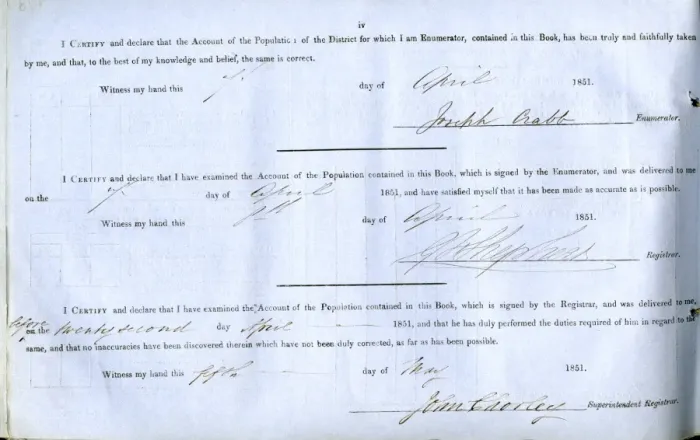 iv
I CERTIFY and declare that the Account of the Populatic : of the District for which I am Enumerator, contained in this Book, has been truly and faithfully taken
by me, and that, to the best of my knowledge and belief, the same is correct.
Witness my hand this 7. day of April 1851.
Joseph Crabb Enumerator.
I CERTIFY and declare that I have examined the Account of the Population contained in this Book, which is signed by the Enumerator, and was delivered to me
on the 7. day of April 1851, and have satisfied myself that it has been made as accurate as is possible.
Witness my hand this day of April 1851.
Registrar.
I CERTIFY and declare that I have examined the Account of the Population contained in this Book, which is signed by the Registrar, and was delivered to me,
before
on the twenty second day April 1851, and that he has duly performed the duties required of him in regard to the
same, and that no inaccuracies have been discovered therein which have not been duly corrected, as far as has been possible.
Witness my hand this fifth day of May 1851.
John Chorley Superintendent Registrar.